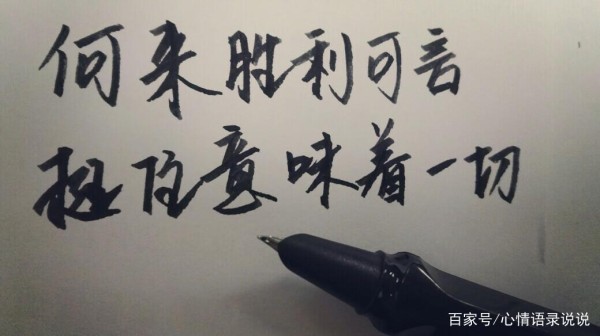 何来胜利可言
挺住意味着一切
百家号/心情语录说说